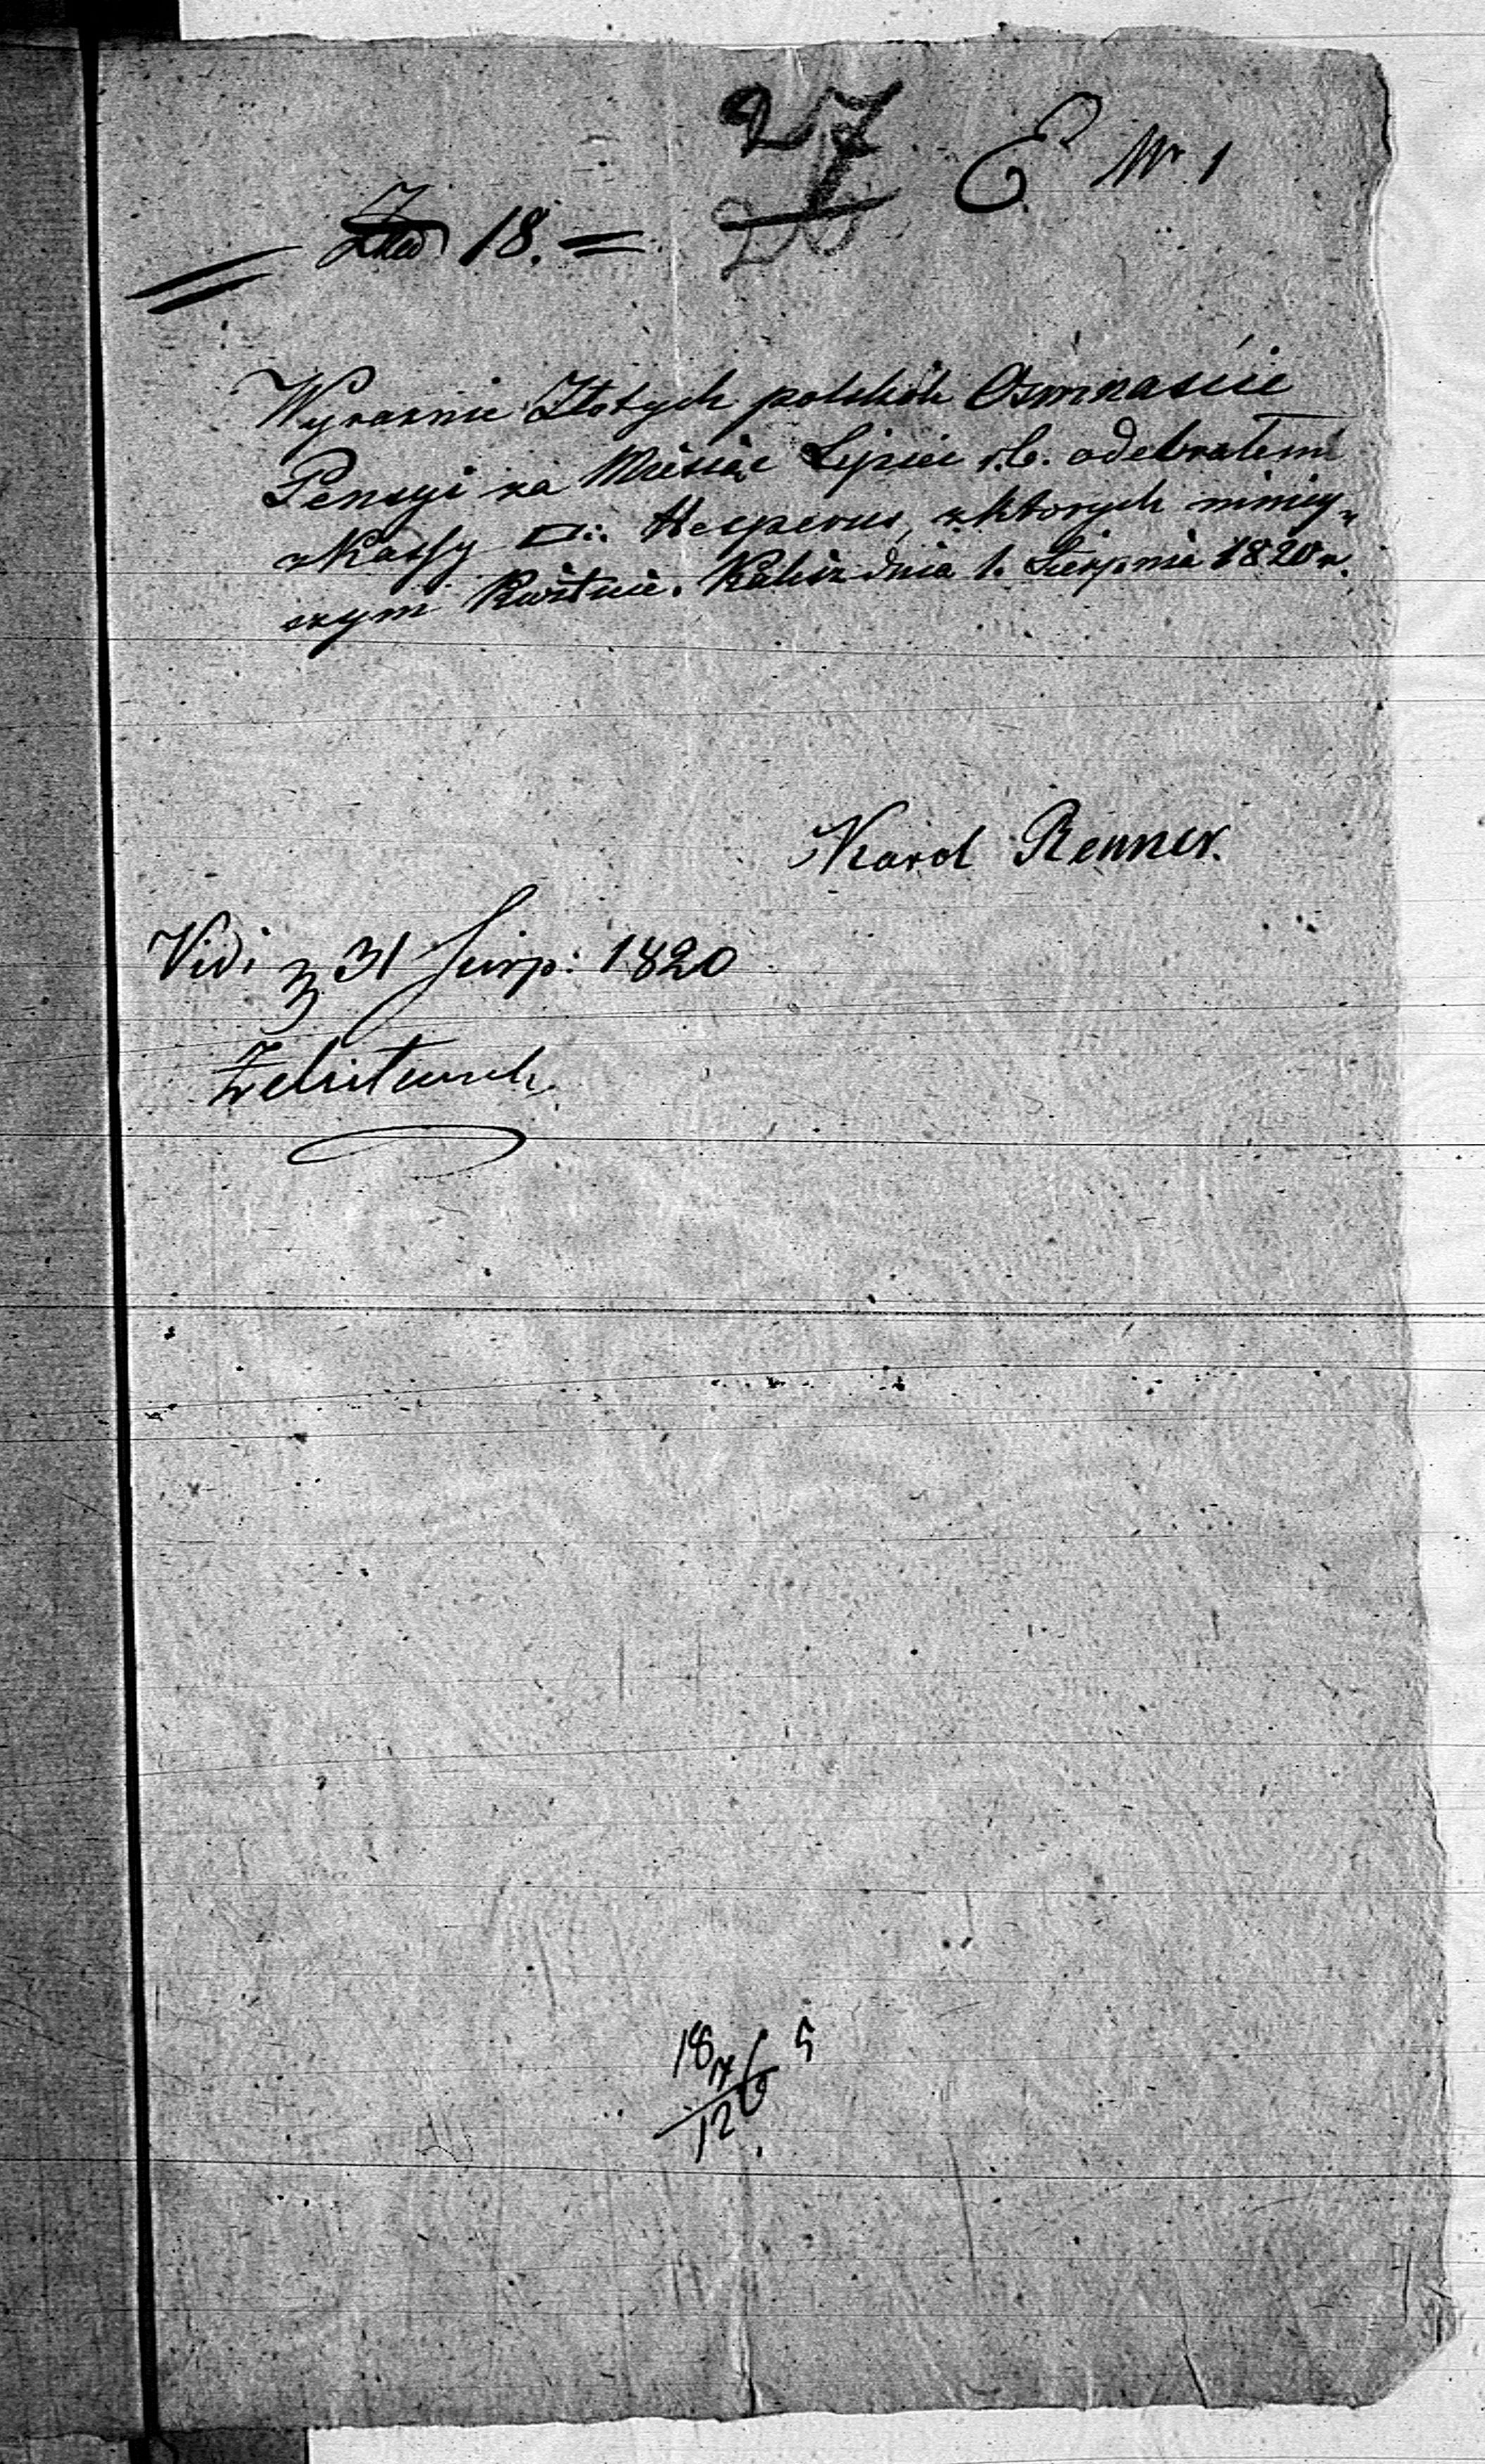 27
E Nr 1
26
18. =
Wyraznie Złotych polskich Osmnaście
Pensyi za Miesiąc Lipiec r.b. odebrałem
z Kassy □:. Hesperus, z których niniey„
szym kwituię. Kalisz dnia 1. Sierpnia 1820 r.
Karol Renner.
Vidi 31 Sierp: 1820
18
12
5